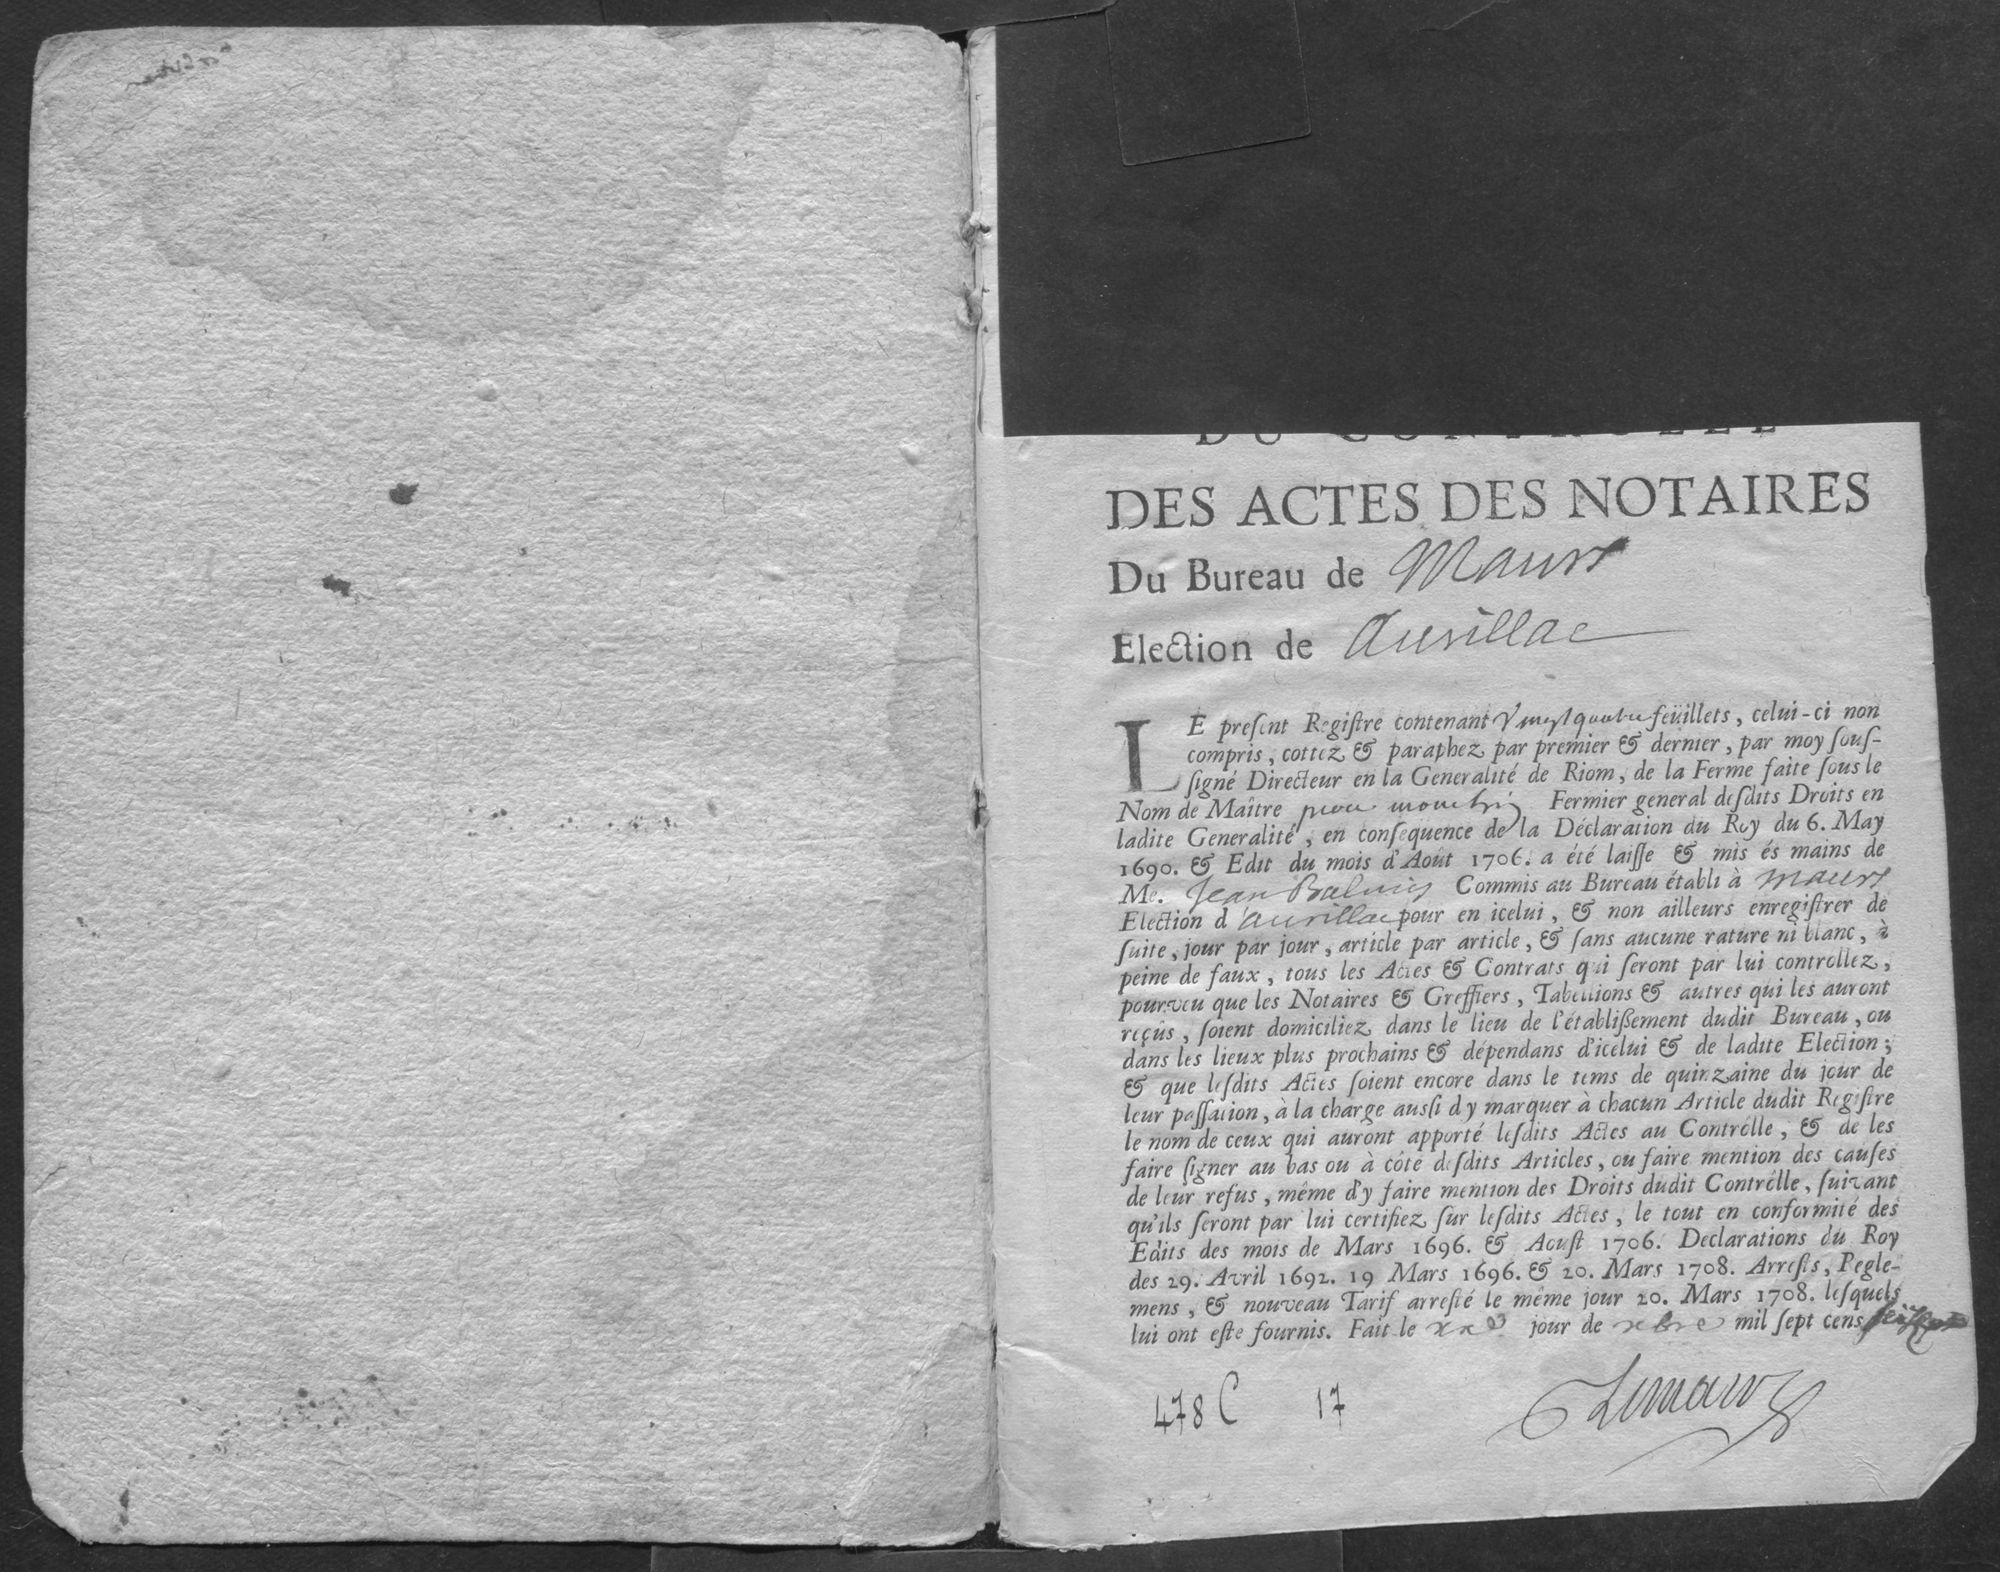 DU CONTROLLE
DES ACTES DES NOTAIRES
Du Bureau de Maurs
Election de Aurillac
LE preſent Regiſtre contenant Vingt quatre feüillets, celui-ci non
compris, cottez & paraphez par premier & dernier, par moy ſouſ-
ſigné Directeur en la Generalité de Riom, de la Ferme faite ſous le
Nom de Maître Fermier general deſdits Droits en
ladite Generalité, en conſequence de la Déclaration du Roy du 6. May
1690. & Edit du mois d'Août 1706. a été laiſſe & mis és mains de
Me. Jean Commis au Bureau établi à maurs
Election d'aurillac pour en icelui, & non ailleurs enregiſtrer de
ſuite, jour par jour, article par article, & ſans aucune rature ni blanc, à
peine de faux, tous les Actes & Contrats qui ſeront par lui controllez,
pourveu que les Notaires & Greffiers, Tabellions & autres qui les auront
reçûs, ſoient domiciliez dans le lieu de l'établiſſement dudit Bureau, ou
dans les lieux plus prochains & dépendans d'icelui & de ladite Election;
& que leſdits Actes ſoient encore dans le tems de quinzaine du jour de
leur paſſation, à la charge auſſi d'y marquer à chacun Article dudit Regiſtre
le nom de ceux qui auront apporté leſdits Actes au Contrôlle, & de les
faire ſigner au bas ou à côté deſdits Articles, ou faire mention des cauſes
de leur refus, même d'y faire mention des Droits dudit Contrôlle, ſuivant
qu'ils ſeront par lui certifiez ſur leſdits Actes, le tout en conformité des
Edits des mois de Mars 1696. & Aouſt 1706. Declarations du Roy
des 29. Avril 1692. 19 Mars 1696. & 20. Mars 1708. Arreſts, Regle-
mens, & nouveau Tarif arreſté le même jour 20. Mars 1708. leſquels
lui ont eſte fournis. Fait le xxe jour de xbre mil ſept cens
478 C 17